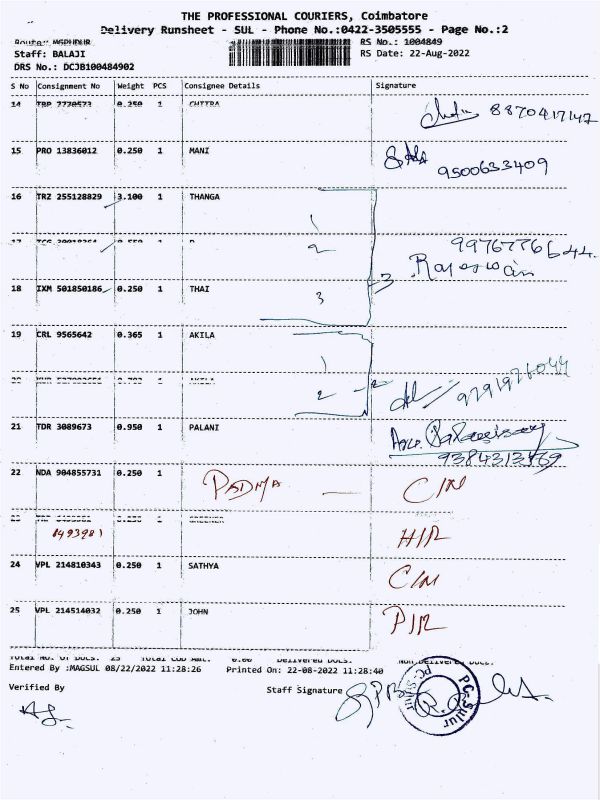 THE PROFESSIONAL COURIERS, Coimbatore
Delivery Runsheet - SUL - Phone No.:0422-3505555 - Page No.:2
RS No.: 1004849
Staff: BALAJI RS Date: 22-Aug-2022
DRS No.: DCJB100484902
S No Consignment No Weight PCS Consignee Details Signature
14 TRP 7770573 0.250 1 CHITRA 8870417147
15 PRO 13836012 0.250 1 MANI
9500633409
16 TRZ 255128829 3.100 1 THANGA
1
17 2 9976776644
3
18 IXM 501850186 0.250 1 THAI
3
19 CRL 9565642 0.365 1 AKILA
1
20 AKILA 2 2
21 TDR 3089673 0.950 1 PALANI
9384313469
22 NDA 904855731 0.250 1 PADMA — C/N
23
H/R
24 VPL 214810343 0.250 1 SATHYA C/N
25 VPL 214514032 0.250 1 JOHN P/R
Total No. Of Docs. 25 Total COD Amt. 0.00 Delivered Docs. Non Delivered Docs.
Entered By :MAGSUL 08/22/2022 11:28:26 Printed On: 22-08-2022 11:28:40
Verified By Staff Signature
PC-Sulur PC-Sulur